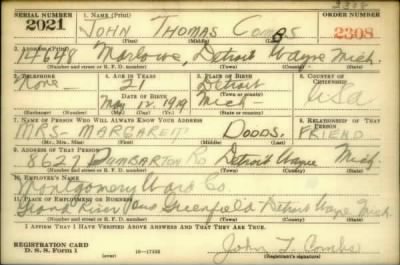 3308
SERIAL NUMBER 1. NAME (Print) ORDER NUMBER
2021 JOHN THOMAS COMBS 2308
(First) (Middle) (Last)
2. ADDRESS (Print)
14628 Marlowe, Detroit Wayne Mich.
(Number and street or R. F. D. number) (Town) (County) (State)
3. TELEPHONE 4. AGE IN YEARS 5. PLACE OF BIRTH 6. COUNTRY OF CITIZENSHIP
None 21 Detroit USA
DATE OF BIRTH (Town or county)
May 12, 1919 Mich
(Exchange) (Number) (Mo.) (Day) (Yr.) (State or country)
7. NAME OF PERSON WHO WILL ALWAYS KNOW YOUR ADDRESS 8. RELATIONSHIP OF THAT PERSON
MRS- MARGARET DODDS. FRIEND
(Mr., Mrs., Miss) (First) (Middle) (Last)
9. ADDRESS OF THAT PERSON
8627 Dumbarton Rd Detroit Wayne Mich.
(Number and street or R. F. D. number) (Town) (County) (State)
10. EMPLOYER'S NAME
Montgomery Ward Co
11. PLACE OF EMPLOYMENT OR BUSINESS
Grand River and Greenfield Detroit Wayne Mich.
(Number and street or R. F. D. number) (Town) (County) (State)
I AFFIRM THAT I HAVE VERIFIED ABOVE ANSWERS AND THAT THEY ARE TRUE.
REGISTRATION CARD
D. S. S. Form 1 (over) 16—17105 John T. Combs